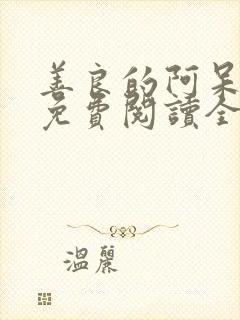 善良的阿呆
免費閱讀全
溫麗